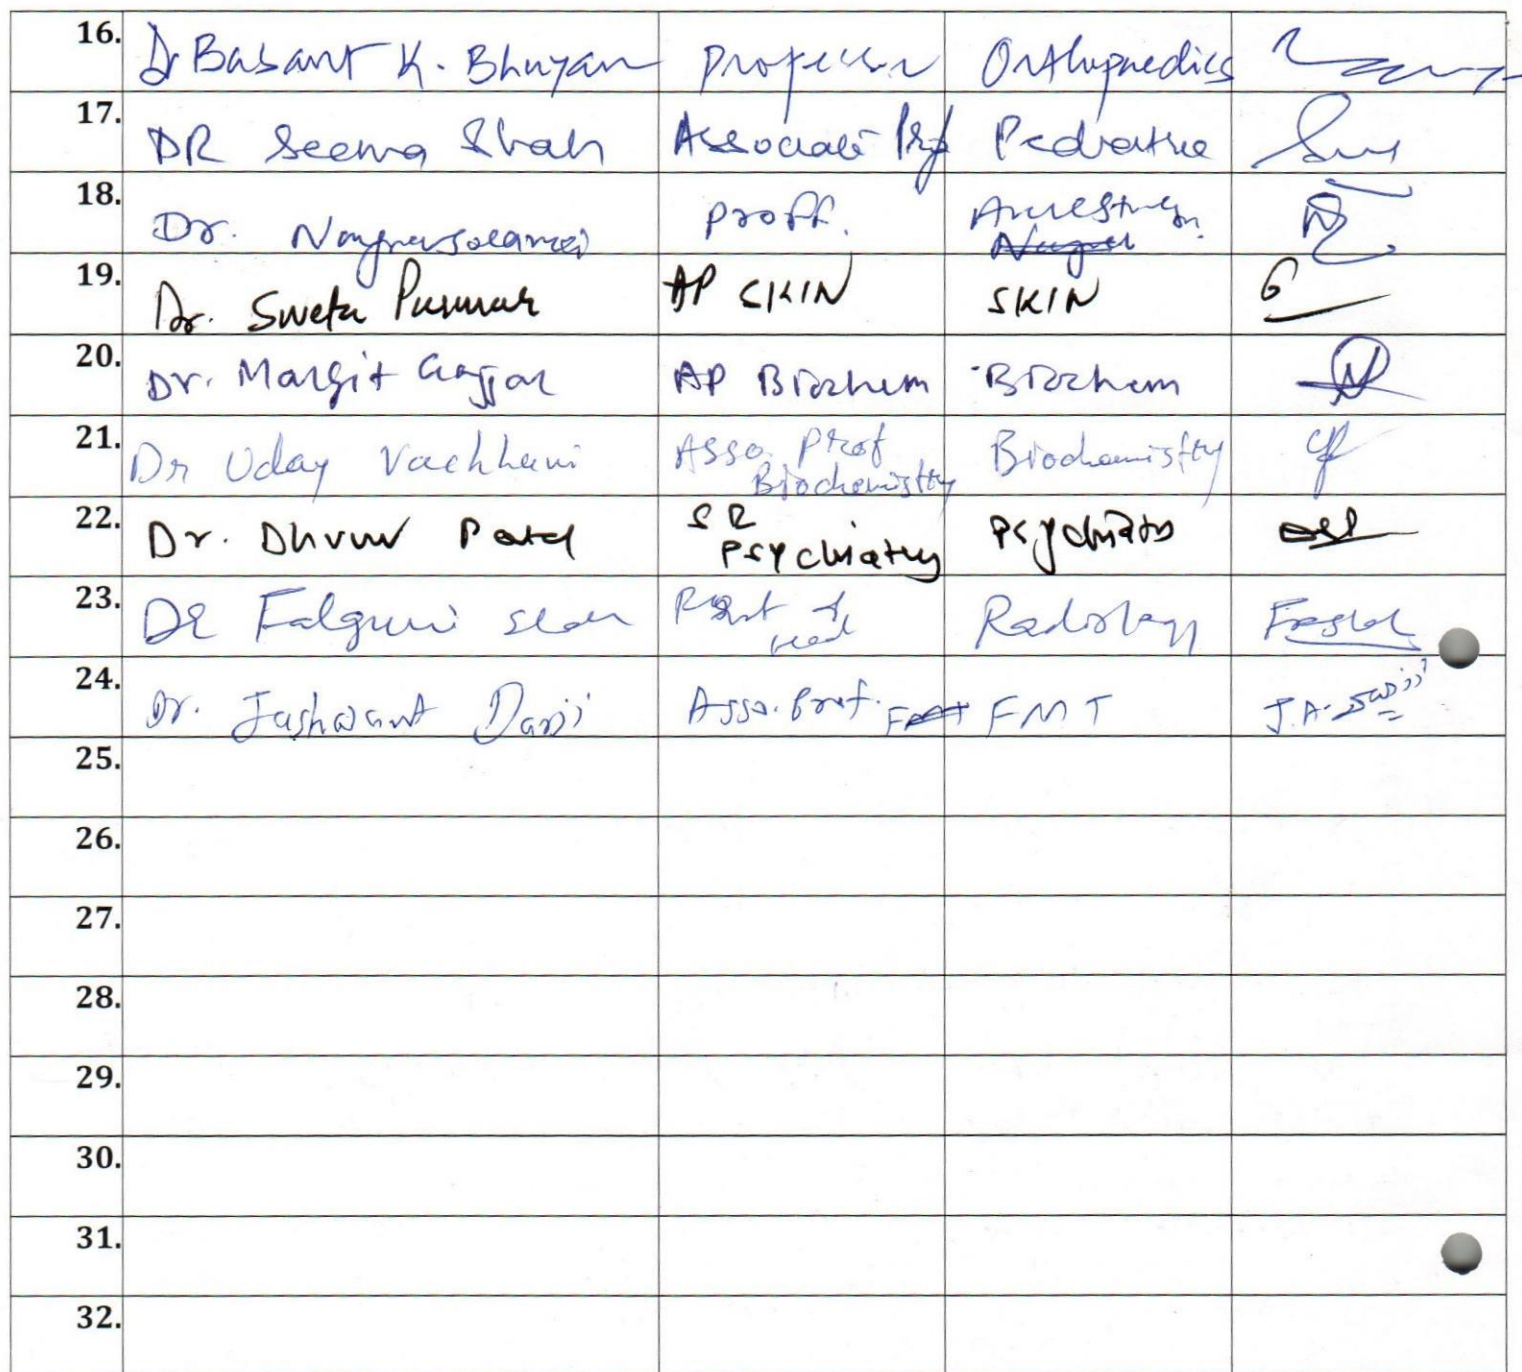 16. Dr Basant K. Bhuyan Professor Orthopaedics
17. DR Seema Shah Associate Prof Pediatric
18. Dr. Proff.
19. Dr. Sweta Parmar AP SKIN SKIN
20. Dr. Margit Gajjar AP Biochem Biochem
21. Dr Uday Vachhani Asso. Prof Biochemistry
Biochemistry
22. Dr. Dhruv Patel SR Psychiatry
Psychiatry
23. DR Falguni Shah Radiology
Head
24. Dr. Jashwant Darji Asso. Prof. FMT J.A. Darji
25.
26.
27.
28.
29.
30.
31.
32.